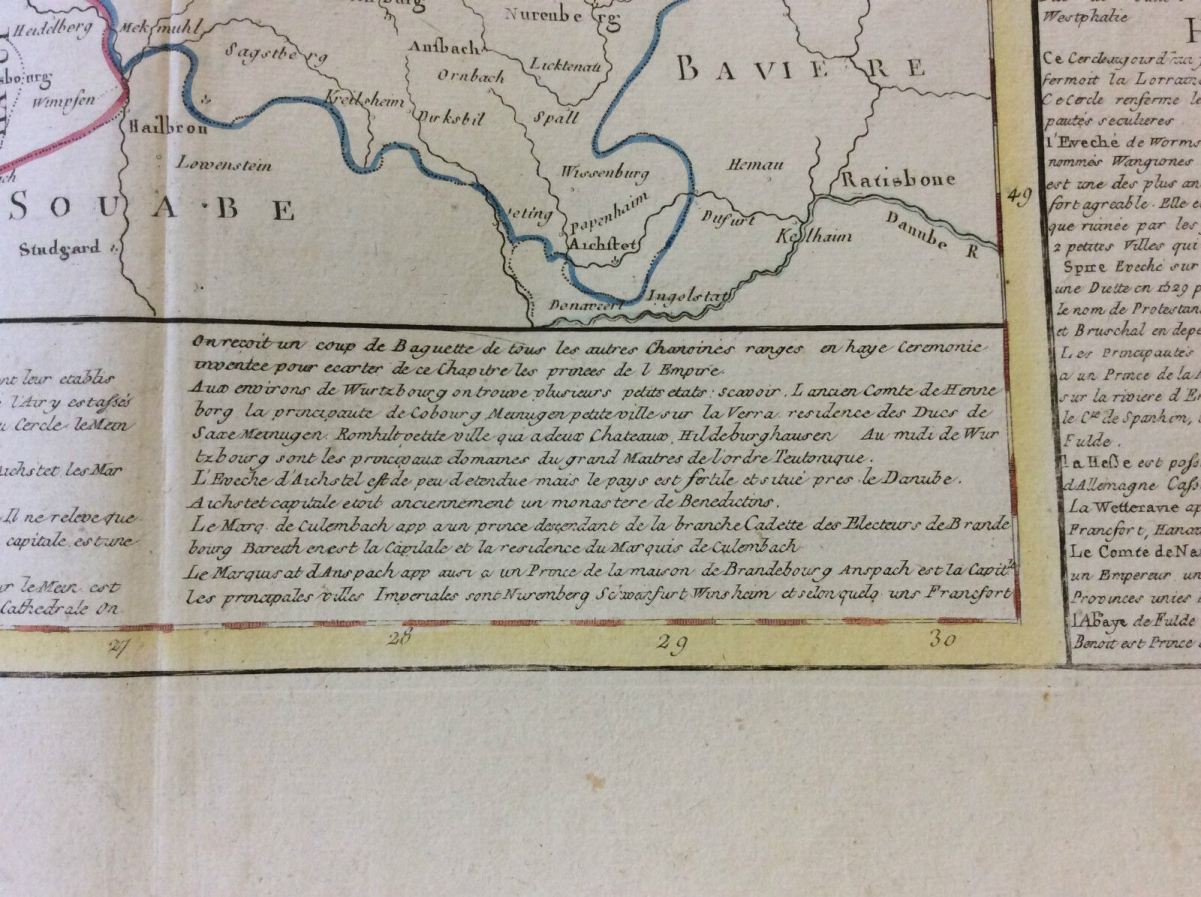 Heidelborg
Mekmuhl
Nurenberg
Sagstberg
Ansbach
Ornbach
Licktenau
BAVIERE
Wimpfen
Kreilsheim
Dirksbil
Spall
Hailbron
Lowenstein
Wissenburg
Hemau
Ratisbone
SOUABE
Papenhaim
Dufurt
Kelhaim
Danube R
49
Studgard
Aichstet
Donavert
Ingelstat
On reçoit un coup de Baguette de tous les autres Chanoines ranges en haye Ceremonie
inventée pour ecarter de ce Chapitre les princes de l Empire
Aux environs de Wurtzbourg on trouve plusieurs petits etats: scavoir. L ancien Comte de Henne
borg la principaute de Cobourg Meinugen petite ville sur la Verra residence des Ducs de
Saxe Meinugen. Romhilt petite ville qui a deux Chateaux, Hildeburghausen Au midi de Wur
tzbourg sont les principaux domaines du grand Maitres de l'ordre Teutonique.
L'Eveche d'Aichstel est de peu d'etendue mais le pays est fertile et situé pres le Danube.
Aichstet capitale etoit anciennement un monastere de Benedictins.
Le Marq. de Culembach app a un prince descendant de la branche Cadette des Electeurs de Brande
bourg Bareuth en est la Capitale et la residence du Marquis de Culembach
Le Marquisat d'Anspach app ausi a un Prince de la maison de Brandebourg Anspach est la Capitle
les principales villes Imperiales sont Nuremberg Scwarsfurt Winsheim et selon quelq uns Francfort
nt leur etablis
l'Air y est assés
u Cercle le Mein
Aichstet les Mar
Il ne releve que
capitale est une
ur le Mein est
Cathedrale On
27
28
29
30
Westphalie
H
Ce Cercle aujourd'hui
fermoit la Lorraine
Ce Cercle renferme le
pautés seculieres
l'Eveché de Worms
nommés Wangiones
est une des plus an
fort agreable. Elle e
que ruinée par les
2 petites Villes qui
Spire Eveché sur
une Diette en 1529 p
le nom de Protestan
et Bruschal en depe
Les Principautés
a un Prince de la
sur la riviere d E
le Cté de Spanhem,
Fulde.
la Heße est poss
d'Allemagne Cass
La Wetteravie ap
Francfort, Hanau
Le Comté de Na
un Empereur un
Provinces unies
l'Abaye de Fulde
Benoit est Prince